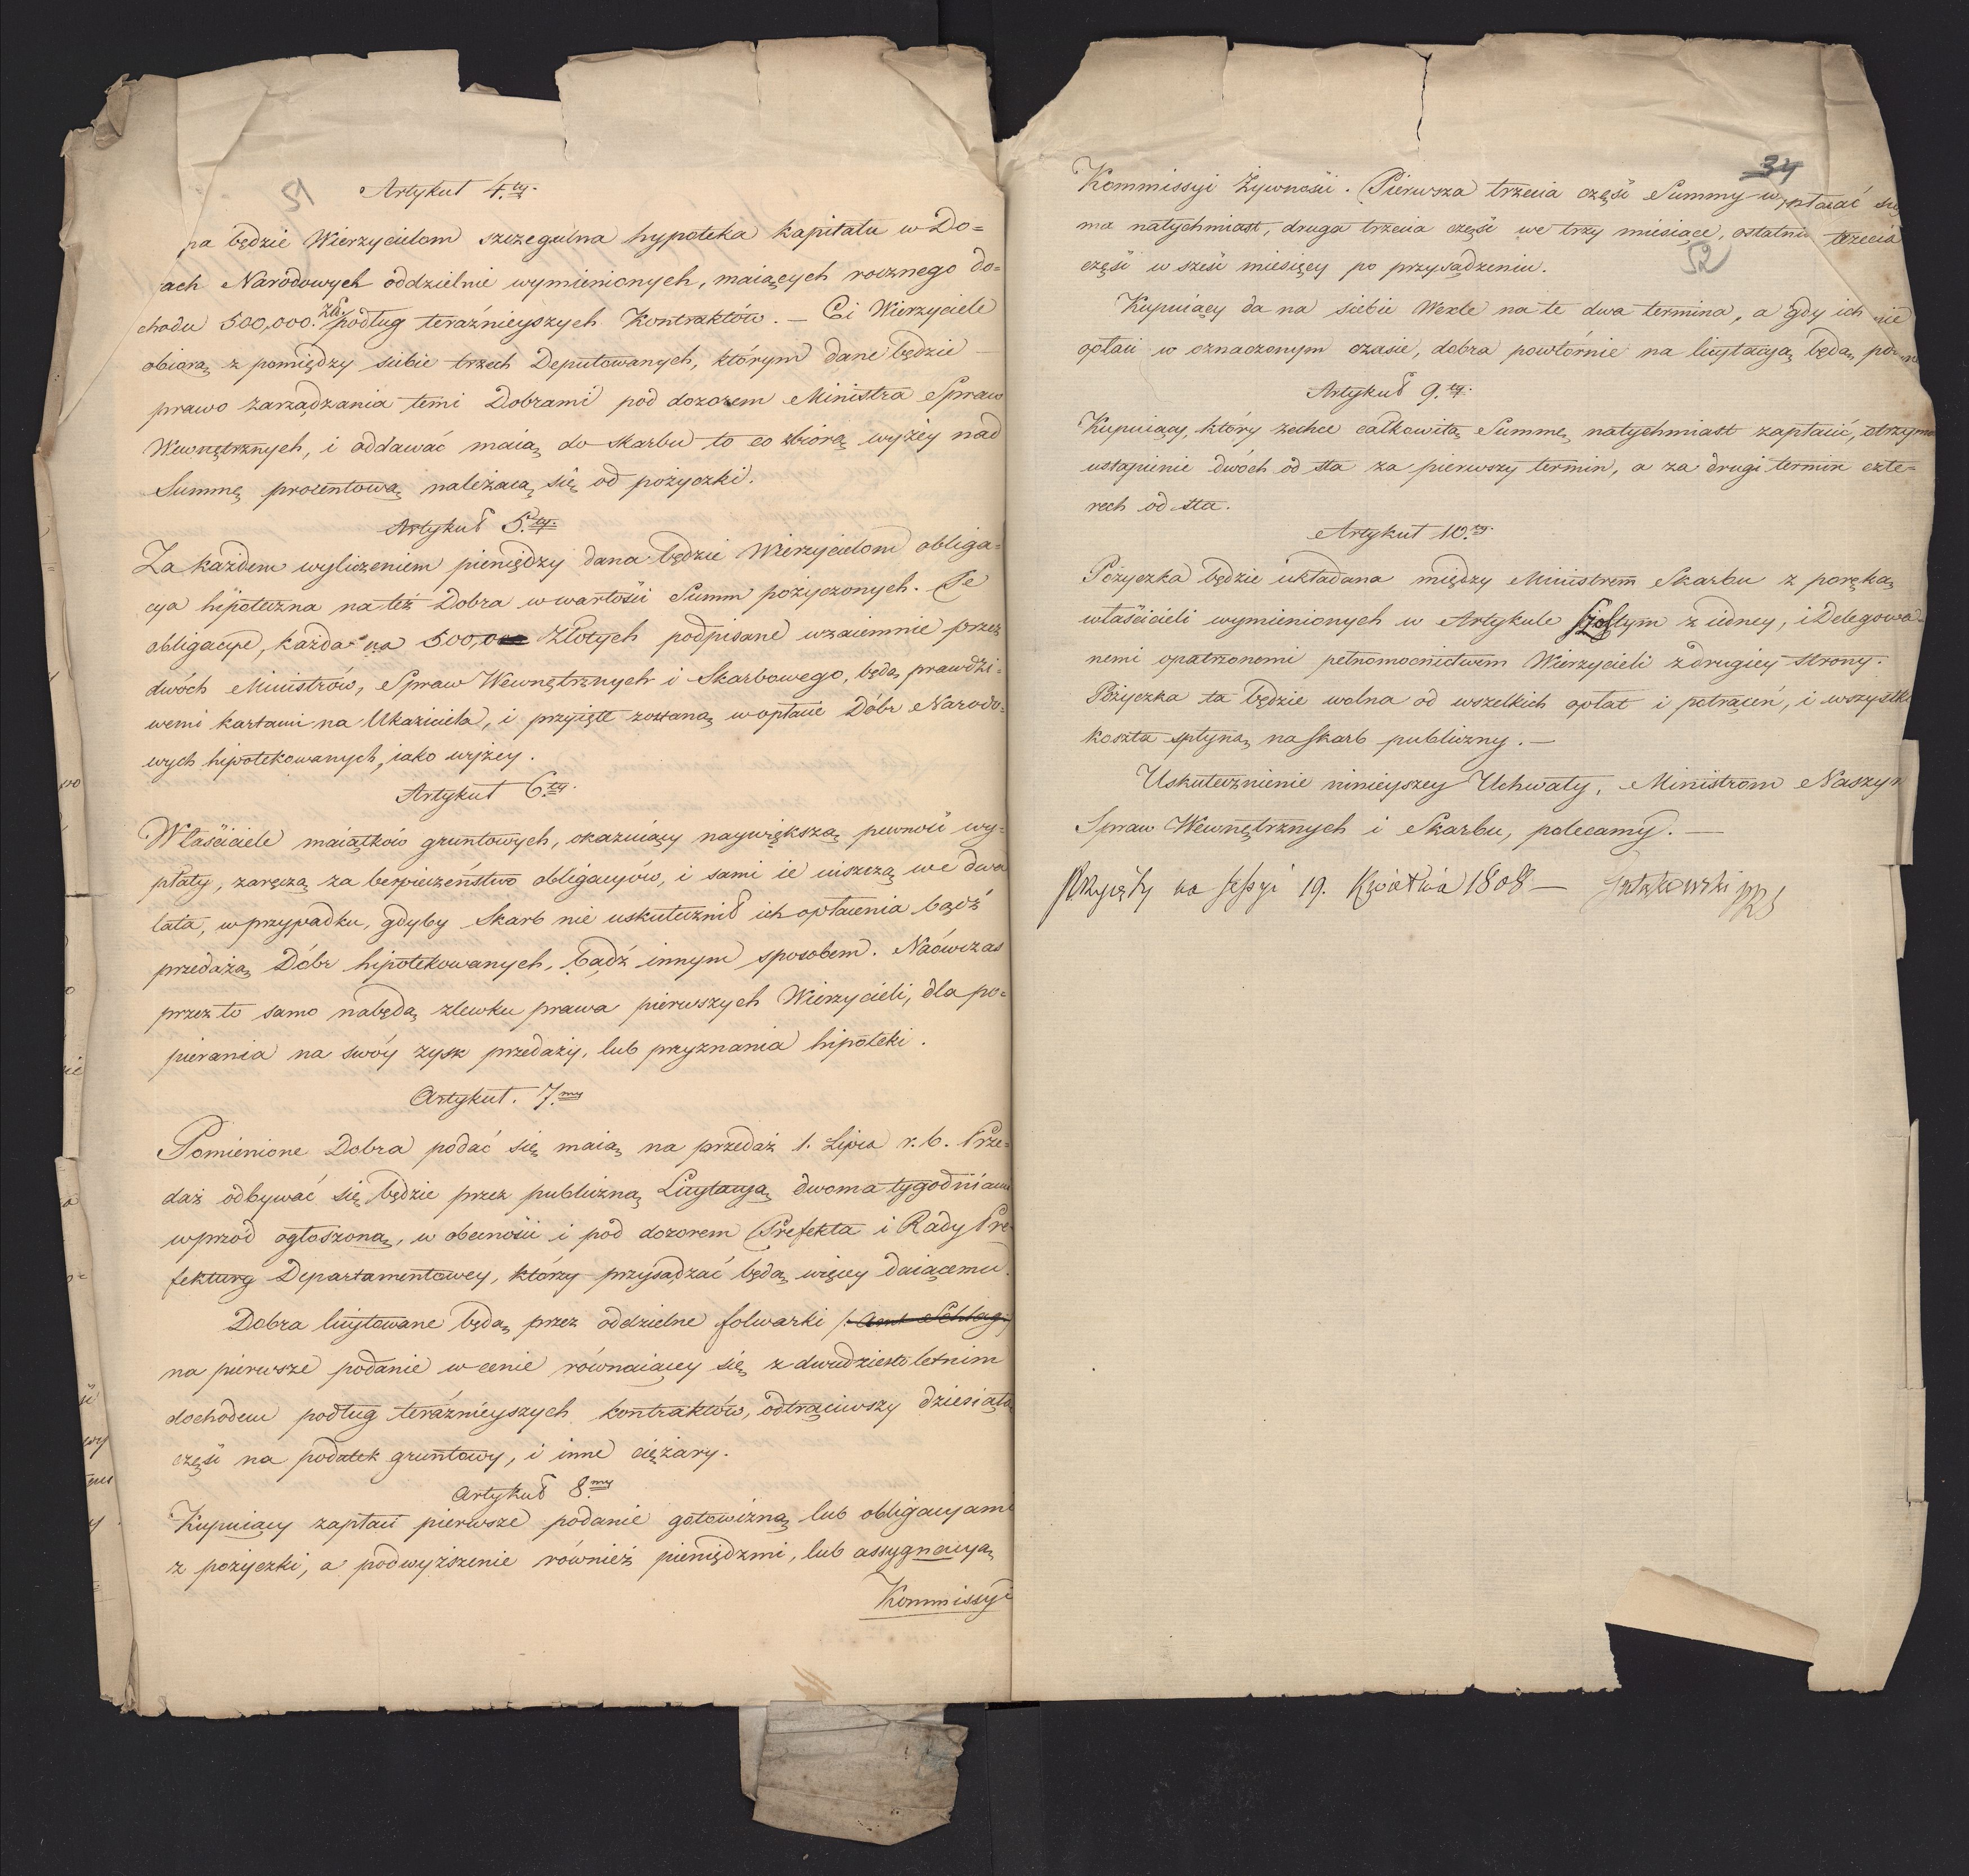 51
Artykuł 4.ty
na będzie Wierzycielom szczegulna hypoteka kapitału w Do=
ach Narodowych oddzielnie wymienionych, maiących rocznego do=
chodu 500,000. Zł. podług teraźnieyszych Kontraktów. — Ci Wierzyciele
obiorą z pomiędzy siebie trzech Deputowanych, którym dane będzie —
prawo zarządzania temi Dobrami pod dozorem Ministra Spraw
Wewnętrznych, i oddawać maią do Skarbu to co zbiorą wyżey nad
Summę procentową należącą się od pożyczki.
Artykuł 5.ty
Za każdem wyliczeniem pieniędzy dana będzie Wierzycielom obliga=
cya hipoteczna na też Dobra w wartości Summ pożyczonych. Te
obligacye, każda na 500,0 Złotych podpisane wzaiemnie przez
dwóch Ministrów, Spraw Wewnętrznych i Skarbowego, będą prawdzi=
wemi kartami na Ukaziciela, i przyięte zostaną w opłacie Dóbr Narodo=
wych hipotekowanych, iako wyżey.
Artykuł 6.ty
Właściciele maiątków gruntowych, okazuiący naywiększą pewność wy=
płaty, zaręczą za bezpieczeństwo obligacyów, i sami ie uiszczą we dwa
lata, w przypadku, gdyby Skarb nie uskutecznił ich opłacenia bądź
przedażą Dóbr hipotekowanych, bądź innym sposobem. Naówczas
przez to samo nabędą zlewku prawa pierwszych Wierzycieli, dla po=
pierania na swóy zysk przedaży, lub przyznania hipoteki.
Artykuł. 7.my
Pomienione Dobra podać się maią na przedaż 1. Lipca r. b. Prze=
daż odbywać się będzie przez publiczną Licytacyą dwoma tygodniami
wprzód ogłoszoną, w obecności i pod dozorem Prefekta i Rady Pre
fektury Departamentowey, którzy przysądzać będą więcey daiącemu.
Dobra licytowane będą przez oddzielne folwarki
na pierwsze podanie w cenie równaiącey się z dwudziesto letnim
dochodem podług teraźnieyszych kontraktów, odtrąciwszy dziesiątą
część na podatek gruntowy, i inne ciężary.
Artykuł 8.my
Kupuiący zapłaci pierwsze podanie gotowizną lub obligacyami
z pożyczki, a podwyższenie również pieniędzmi, lub assygnacyą
Kommissyi
34
Kommissyi Żywności. Pierwsza trzecia część Summy wypłacać się
ma natychmiast, druga trzecia część we trzy miesiące, ostatnia trzecia
część w sześć miesięcy po przysądzeniu.
52
Kupuiący da na siebie Wexle na te dwa termina, a gdy ich nie
opłaci w oznaczonym czasie, dobra powtórnie na licytacyą będą
Artykuł 9.ty
Kupuiący, który zechce całkowitą Summę natychmiast zapłacić, otrzyma
ustąpienie dwóch od sta za pierwszy termin, a za drugi termin czte=
rech od sta.
Artykuł 10.ty
Pożyczka będzie układana między Ministrem Skarbu z poręką
właścicieli wymienionych w Artykule szóstym z iedney, i Delegowa
nemi opatrzonemi pełnomocnictwem Wierzycieli z drugiey strony.
Pożyczka ta będzie wolna od wszelkich opłat i potrąceń, i wszystkie
koszta spłyną na skarb publiczny. —
Uskutecznienie ninieyszey Uchwały, Ministrom Naszym
Spraw Wewnętrznych i Skarbu, polecamy. —
Przyięty na Sessyi 19. Kwietnia 1808 —